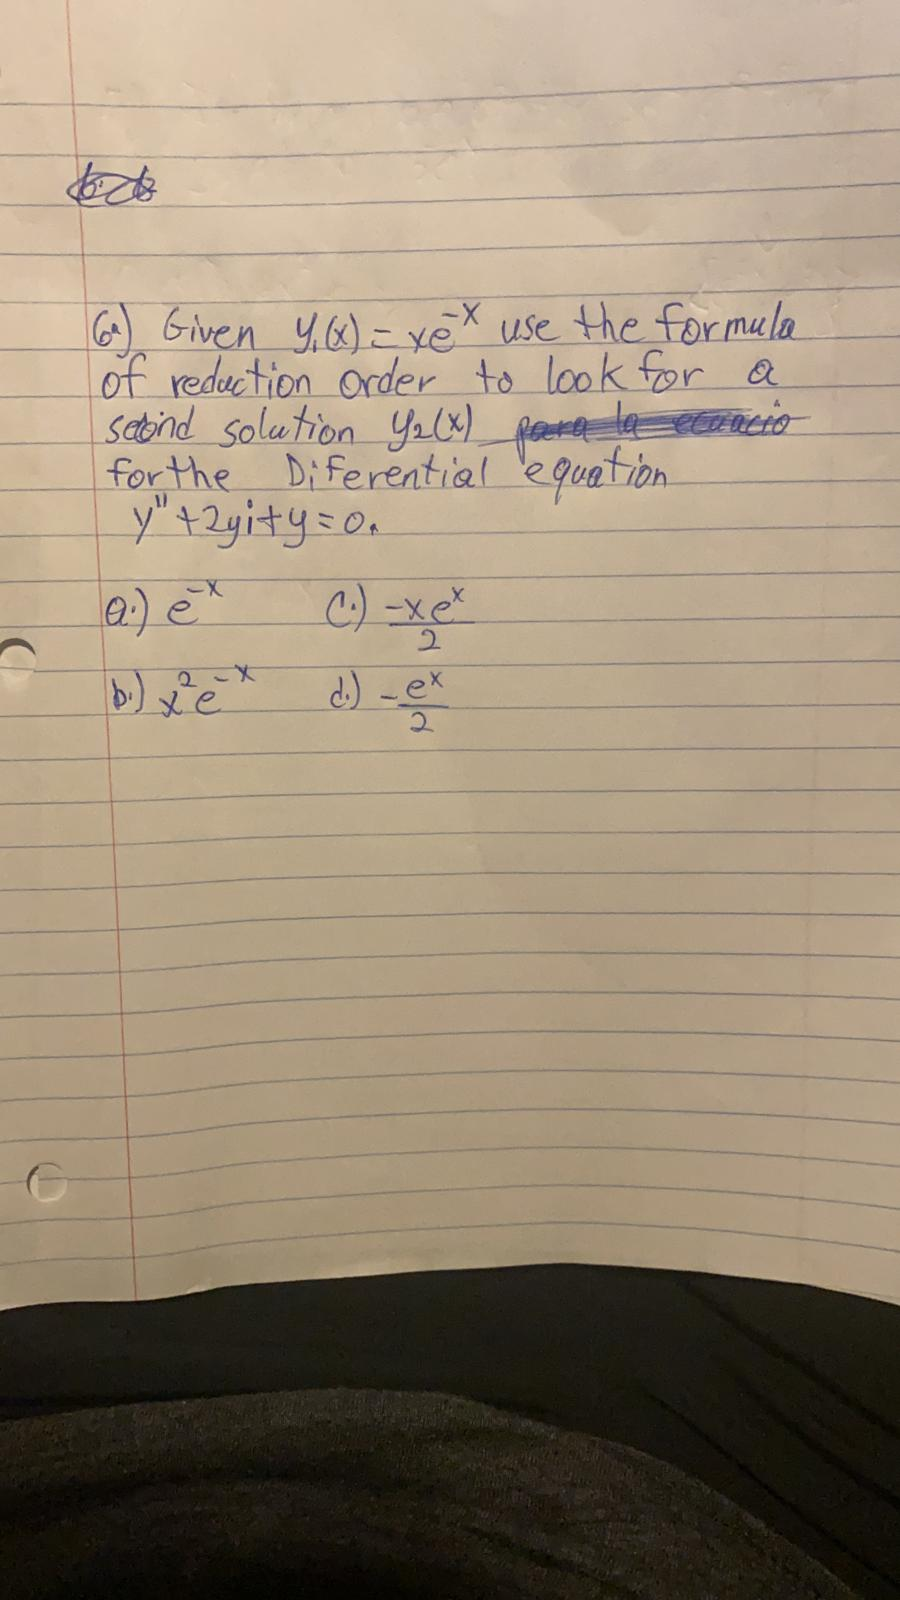 6a) Given y₁(x) = xe⁻ˣ use the formula
of reduction order to look for a
second solution y₂(x) para la ecuacio
for the Diferential equation
y" + 2yi + y = 0.
a.) e⁻ˣ c.) -xeˣ/2
b.) x²e⁻ˣ d.) -eˣ/2